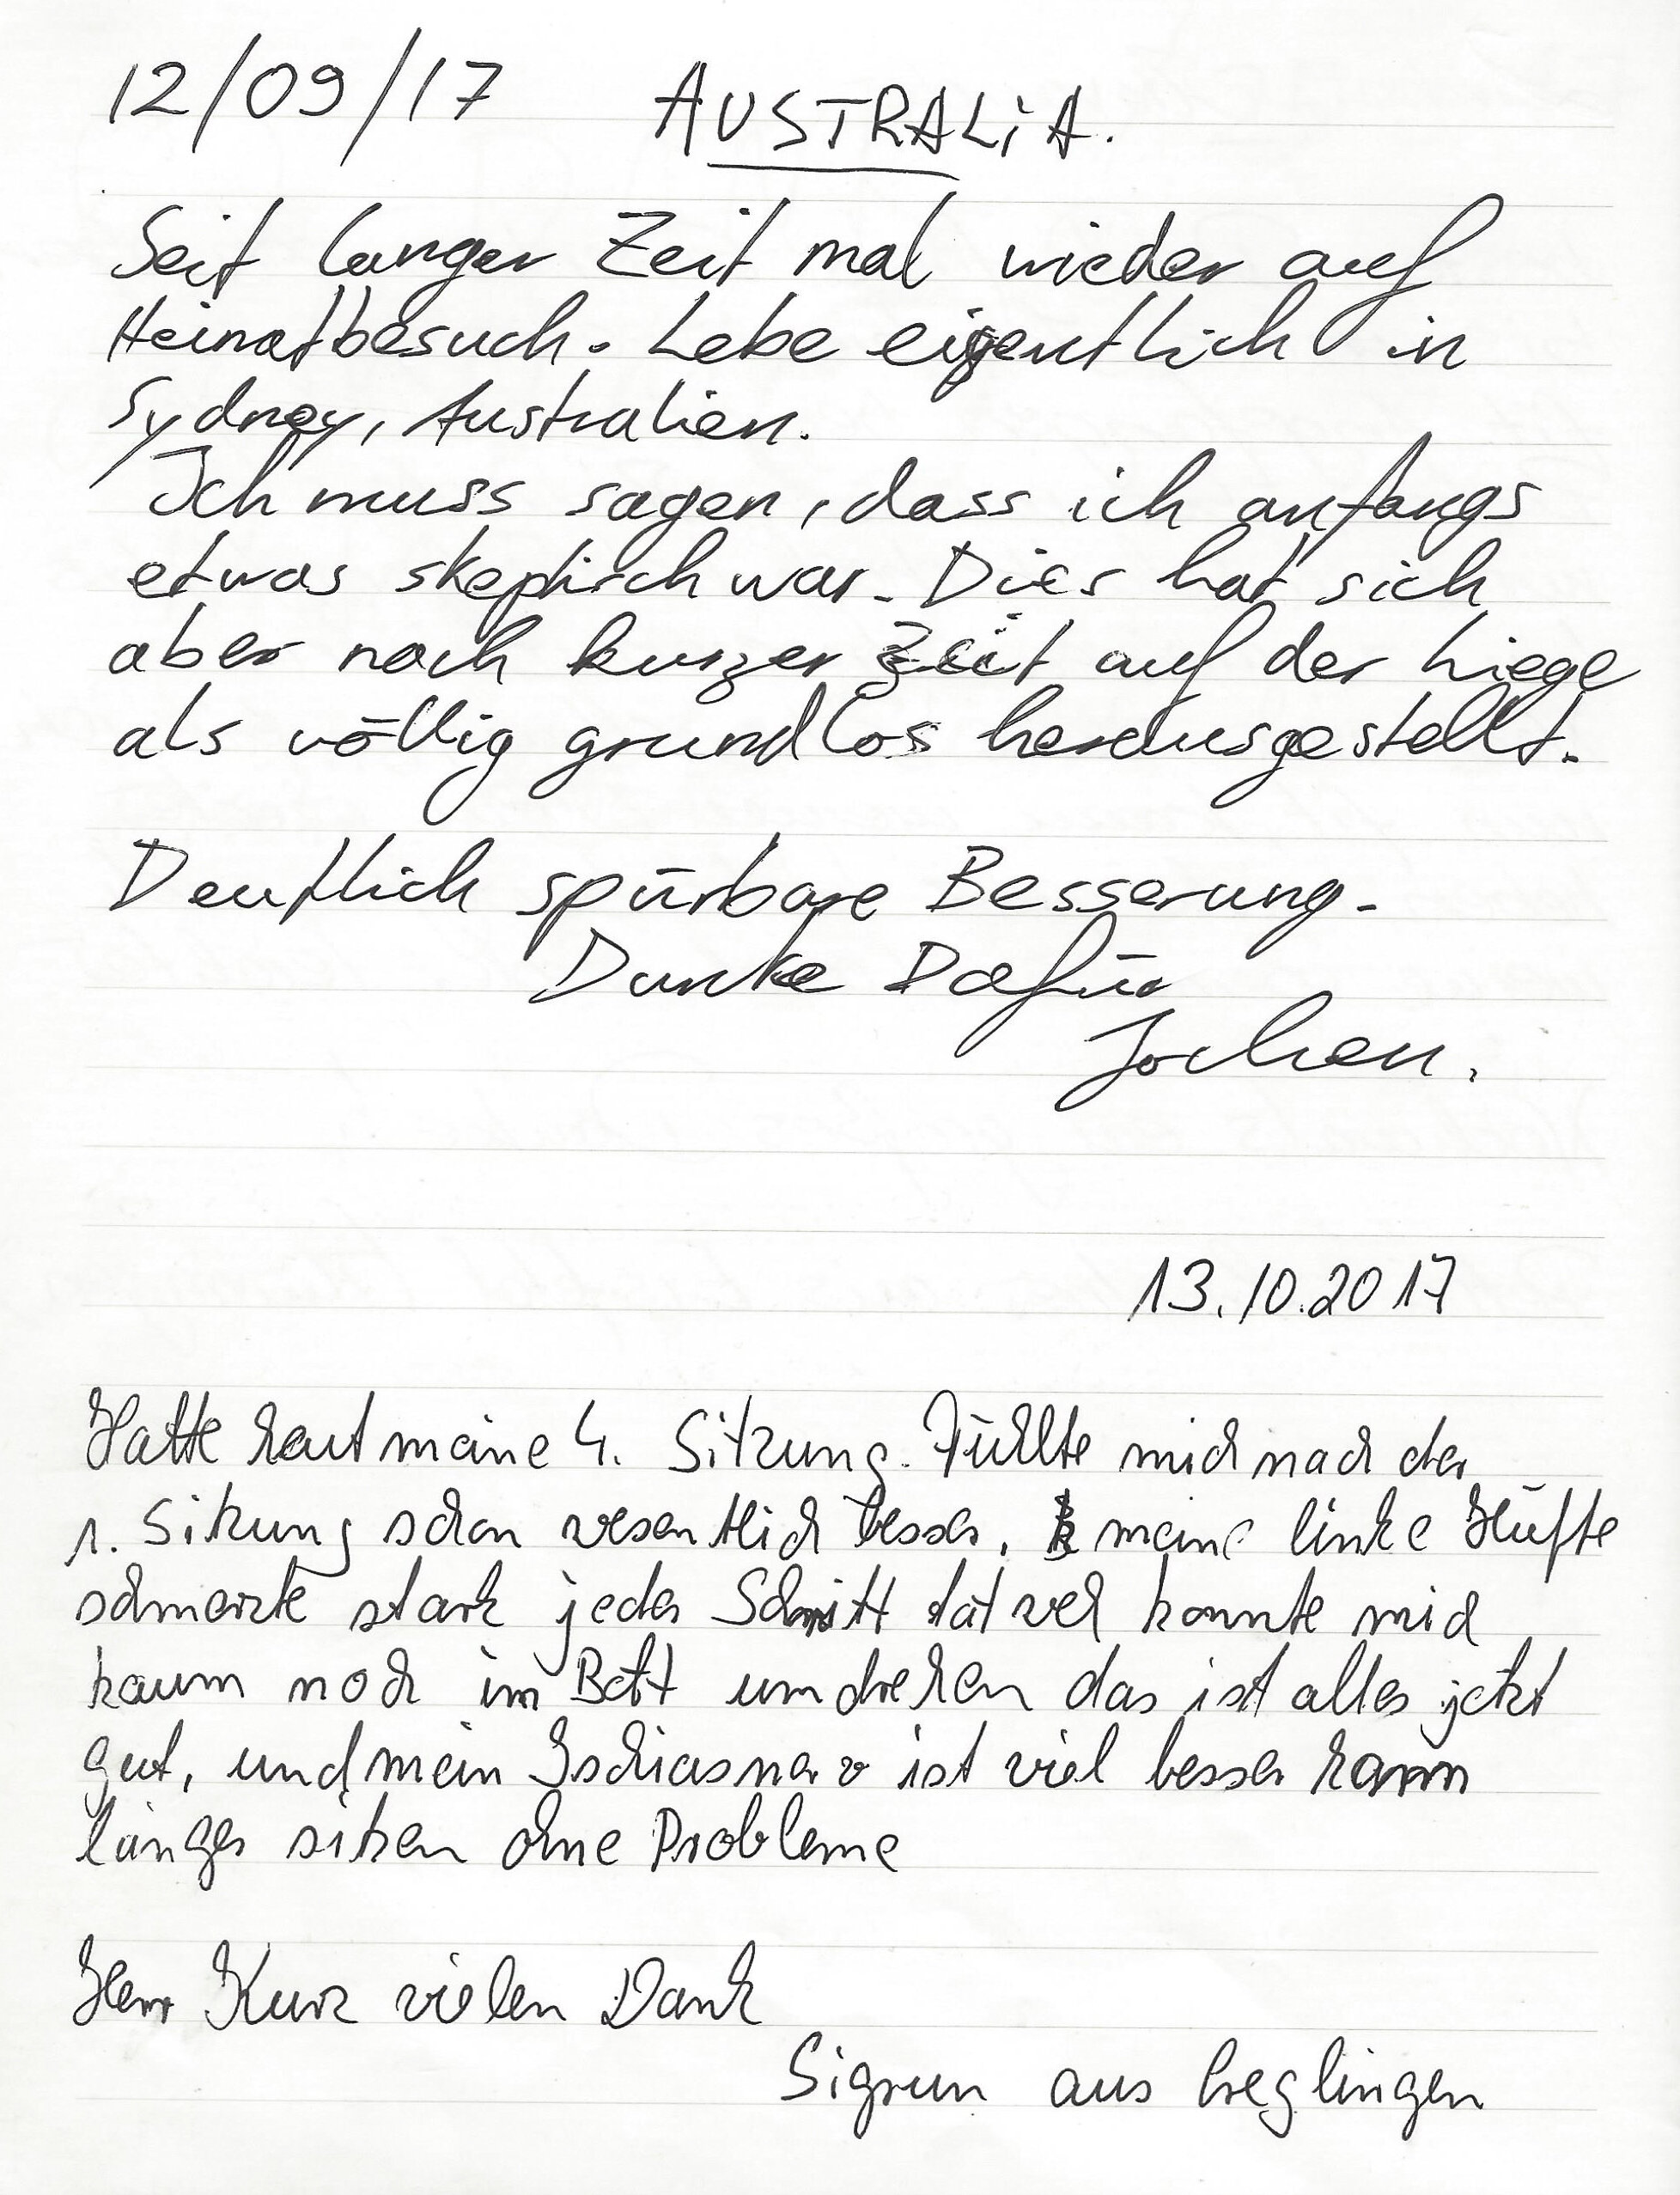 12/09/17 AUSTRALiA.
Seit langer Zeit mal wieder auf
Heimatbesuch. Lebe eigentlich in
Sydney, Australien.
Ich muss sagen, dass ich anfangs
etwas skeptisch war. Dies hat sich
aber nach kurzer Zeit auf der Liege
als völlig grundlos herausgestellt.
Deutlich spürbare Besserung.
Danke Dafür
Jochen.
13.10.2017
Hatte heut meine 4. Sitzung. Fühlte mich nach der
1. Sitzung schon wesentlich besser, meine linke Hüfte
schmerzte stark jeder Schritt tat weh konnte mich
kaum noch im Bett umdrehen das ist alles jetzt
gut, und mein Ischiasnerv ist viel besser kann
länger sitzen ohne Probleme
Herr Kurz vielen Dank
Sigrun aus Creglingen